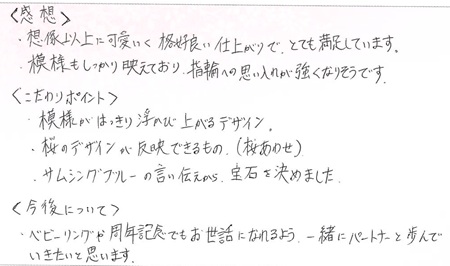 <感想>
・想像以上に可愛いく格好良い仕上がりで、とても満足しています。
・模様もしっかり映えており、指輪への思い入れが強くなりそうです。
<こだわりポイント>
・模様がはっきり浮かび上がるデザイン。
・桜のデザインが反映できるもの。(桜あわせ)
・サムシングブルーの言い伝えから、宝石を決めました。
<今後について>
・ベビーリングや周年記念でもお世話になれるよう、一緒にパートナーと歩んで
いきたいと思います。